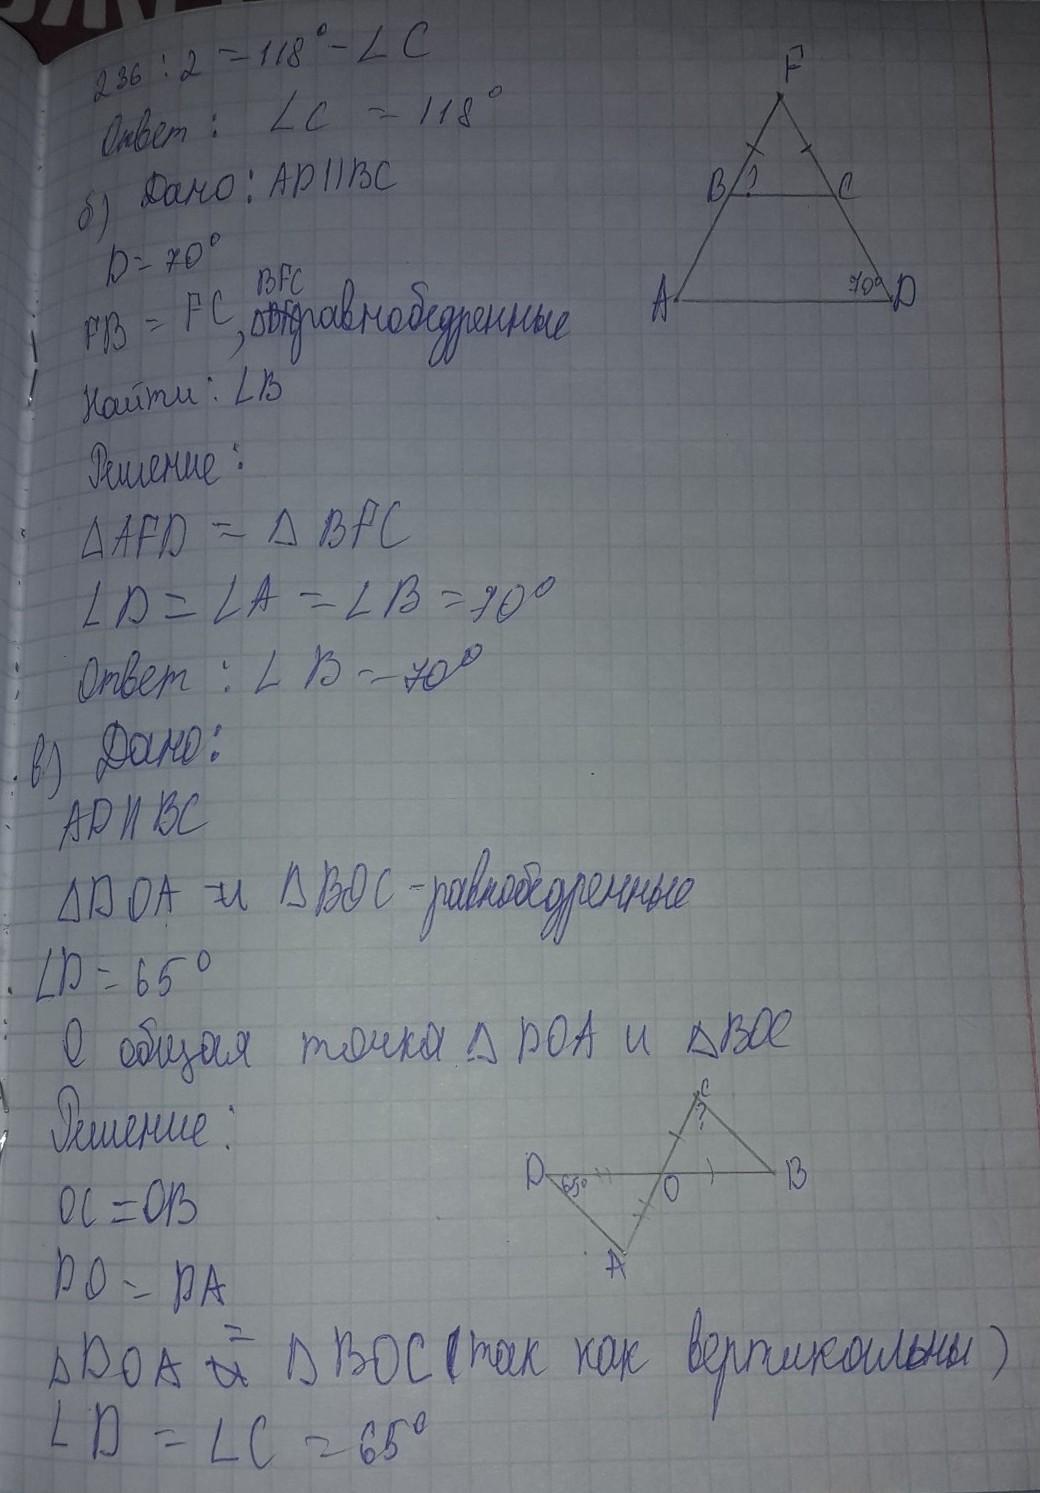 236 : 2 = 118° - ∠C
Ответ: ∠C = 118°
б) Дано: AD || BC
D = 70°
FB = FC, BFC равнобедренные
Найти: ∠B
Решение:
△AFD = △BFC
∠D = ∠A = ∠B = 70°
Ответ: ∠B = 70°
F
B ? C
A 70° D
в) Дано:
AD || BC
△DOA и △BOC - равнобедренные
∠D = 65°
О общая точка △DOA и △BOC
Решение:
OC = OB
DO = DA
△DOA = △BOC (так как вертикальны)
∠D = ∠C = 65°
C
?
D 65° O B
A